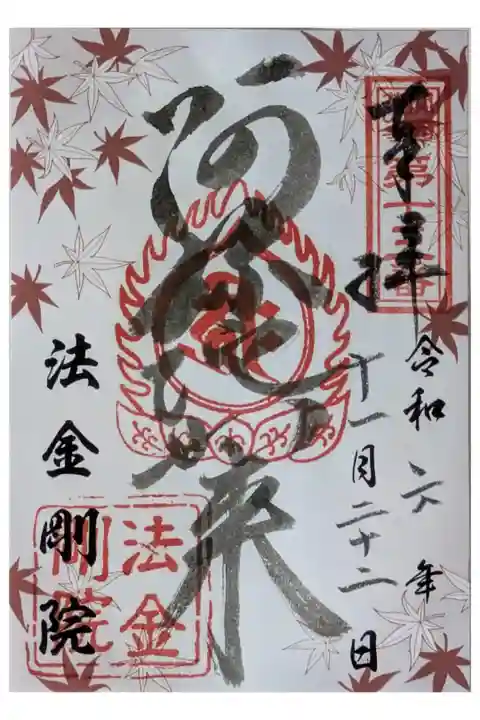 奉拝
第十三番
令和六年
十一月二十二日
阿弥陀如来
法金剛院
法金
剛院